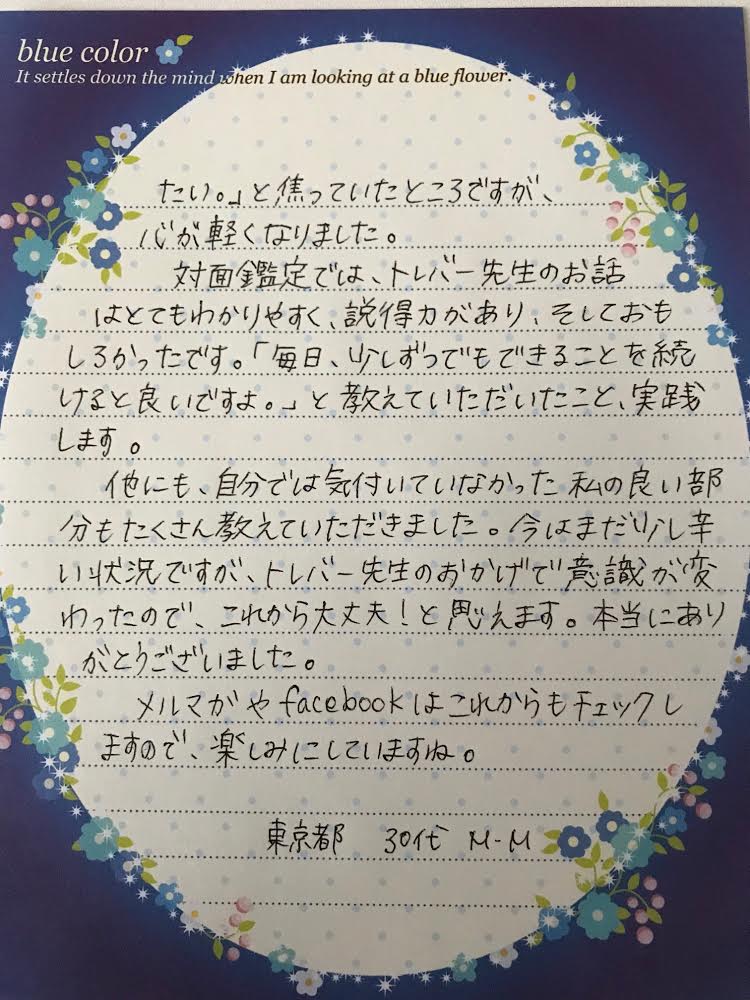 blue color
It settles down the mind when I am looking at a blue flower.
たい。」と焦っていたところですが、
心が軽くなりました。
対面鑑定では、トレバー先生のお話
はとてもわかりやすく、説得力があり、そしておも
しろかったです。「毎日、少しずつでもできることを続
けると良いですよ。」と教えていただいたこと、実践
します。
他にも、自分では気付いていなかった私の良い部
分もたくさん教えていただきました。今はまだ少し辛
い状況ですが、トレバー先生のおかげで意識が変
わったので、これから大丈夫!と思えます。本当にあり
がとうございました。
メルマガやfacebookはこれからもチェックし
ますので、楽しみにしていますね。
東京都 30代 M-M